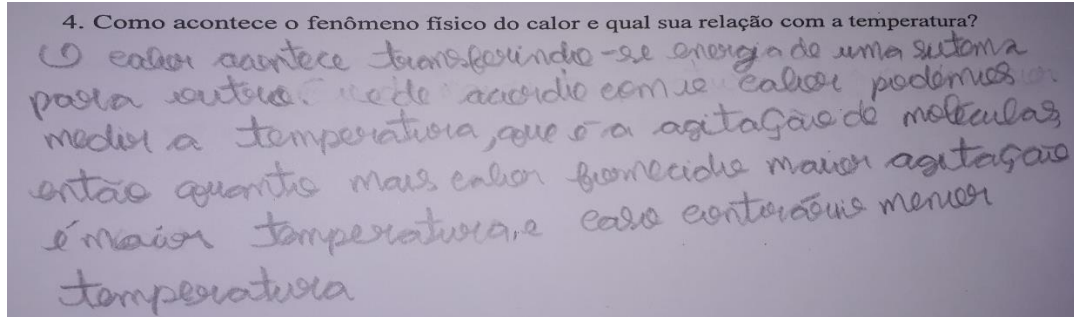 4. Como acontece o fenômeno físico do calor e qual sua relação com a temperatura?
O calor acontece transferindo-se energia de uma sistema
para outro. e de acordo com o calor podemos
medir a temperatura, que é a agitação de moléculas,
então quanto mais calor fornecido maior agitação
é maior temperatura, e caso contrário menor
temperatura